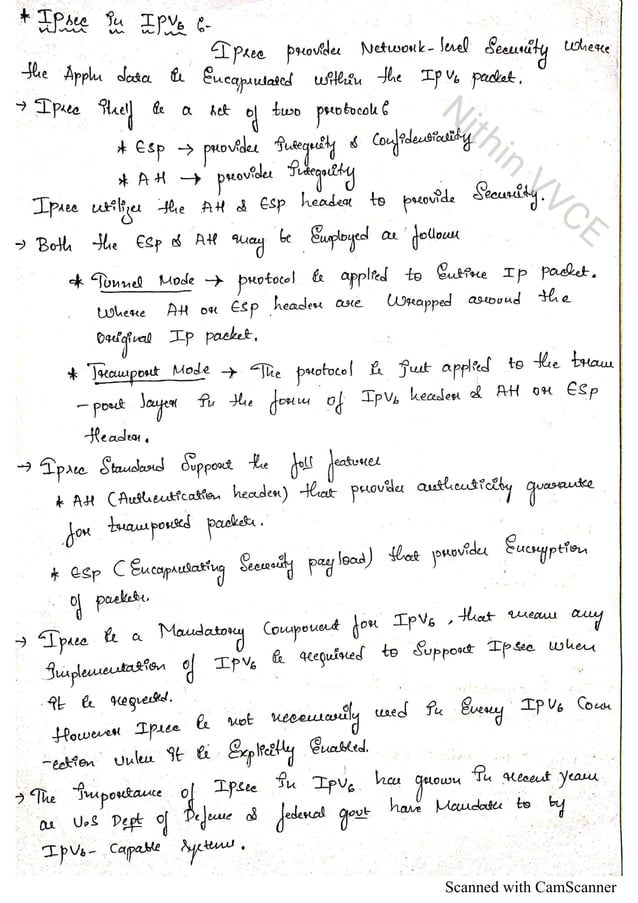 * IPsec in IPV6 :-
IPsec provides Network-level Security where
the Appln data is Encapsulated within the IPV6 packet.
→ IPsec itself is a set of two protocols :
* ESP → provides Integrity & Confidentiality
* AH → provides Integrity
IPsec utilizes the AH & ESP header to provide Security.
→ Both the ESP & AH may be Employed as follows
* Tunnel Mode → protocol is applied to Entire IP packet.
Where AH or ESP headers are Wrapped around the
Original IP packet.
* Transport Mode → The protocol is just applied to the trans
-port layer in the form of IPV6 header & AH or ESP
Header.
→ IPsec Standard Support the foll features
* AH (Authentication header) that provides authenticity guarantee
for transported packets.
* ESP (Encapsulating Security payload) that provides Encryption
of packets.
→ IPsec is a Mandatory Component for IPV6, that means any
Implementation of IPV6 is required to Support IPsec when
it is required.
However IPsec is not necessarily used in Every IPV6 Conn
-ection unless it is Explicitly Enabled.
→ The Importance of IPsec in IPV6 has grown in recent years
as U.S Dept of Defense & federal govt have Mandates to by
IPV6-Capable Systems.
Nithin VVCE
Scanned with CamScanner